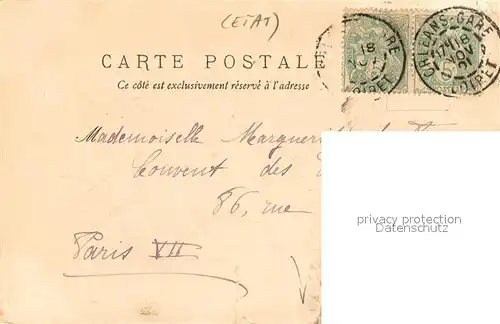 (ETAT)
ORLEANS-GARE
18
NOV
LOIRET
CARTE POSTALE
Ce côté est exclusivement réservé à l'adresse
Mademoiselle Marguerite
Couvent des
86, rue
privacy protection
Datenschutz
Paris VII